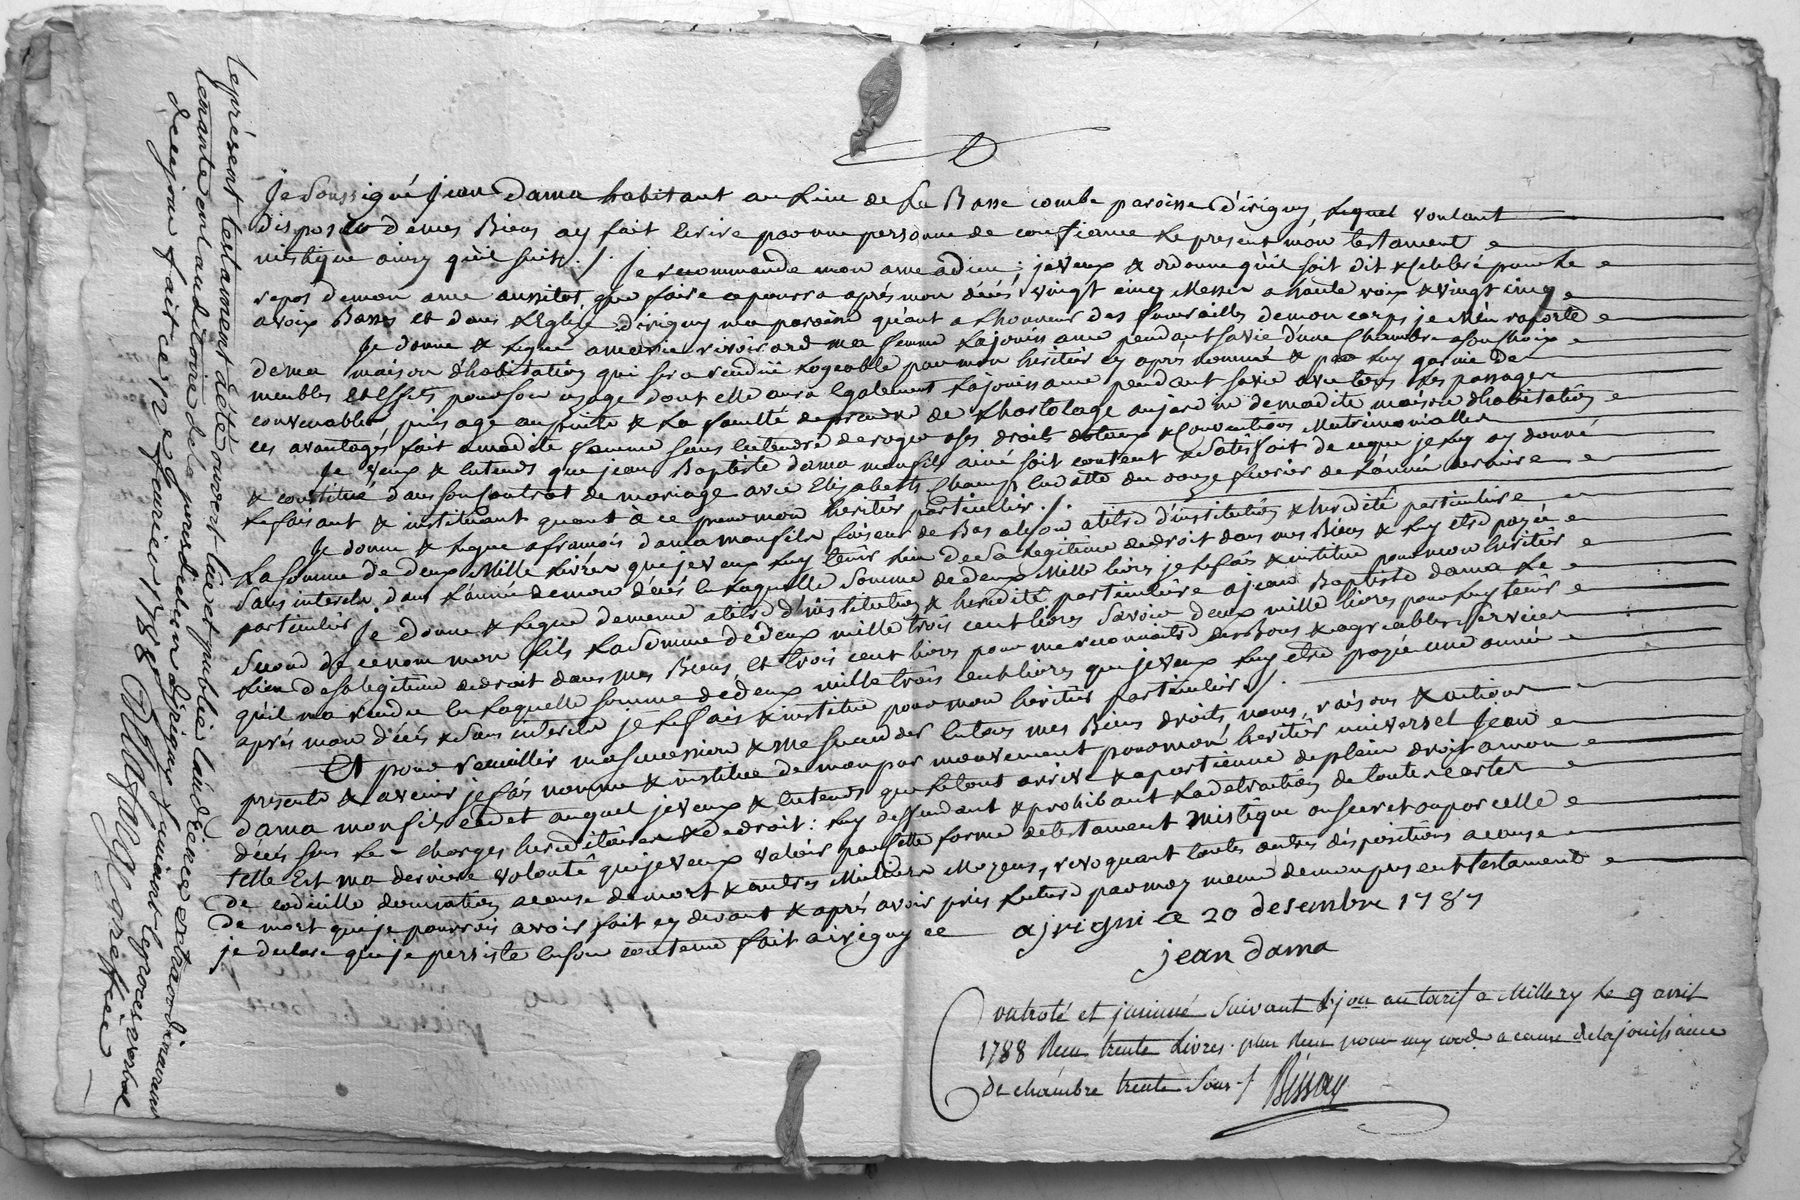 Je soussigné jean dama habitant au lieu de la Basse combe paroisse d'irigny, lequel voulant
disposer de mes Biens ay fait Ecrire par une personne de confiance le present mon testament
mistique ainsy qu'il suit ./.
Je recommande mon ame adieu ; je veux & ordonne qu'il soit dit & celebré pour le
repos de mon ame aussitot que faire ce pourra aprés mon décés vingt cinq Messes a haute voix & vingt cinq
a voix Basses et dans l'Eglise d'irigny ma paroisse quant a l'honneur des funerailles de mon corps je m'en raporte
Je donne & legue a marie rivoirard ma femme la jouissance pendant sa vie d'une Chambre a son choix
de ma maison d'habitation qui sera rendüe logeable par mon heritier cy apres nommé & par luy garnie de
meubles et Effets pour son usage dont elle aura Egalement la jouissance pendant sa vie avec tous les passages
convenables puisage au puits & la faculté de prendre de l'hortolage au jardin de madite maison d'habitation
ces avantages fait a madite femme sans Entendre deroger a ses droits dotaux & Conventions Matrimonialles
Je veux & Entends que jean Baptiste dama mon fils ainé soit content & satisfait de ceque je luy ay donné
& constitué dans son Contrat de mariage avec Elizabeth Champ En datte du onze fevrier de l'année derniere
le faisant & instituant quant à ce pour mon heritier particulier ./.
Je donne & legue a francois dama mon fils faiseur de Bas a lyon a titre d'institution & heredité particuliere
la somme de deux Mille livres que je veux luy tenir lieu de sa legitime de droit dans mes Biens & luy etre payée
sans interets dans l'année de mon décés En laquelle somme de deux Mille livres je le fais & institue pour mon heritier
particulier Je donne & legue de meme a titre d'institution & heredité particuliere a jean Baptiste dama le
second de ce nom mon fils la somme de deux mille trois cent livres savoir deux mille livres pour luy tenir
lieu de sa legitime de droit dans mes Biens, et trois cent livres pour me reconnoitre des bons & agreables services
qu'il m'a rendu En laquelle somme de deux mille trois cent livres que je veux luy etre payée une année
aprés mon décés & sans interets je le fais & institue pour mon heritier particulier ./.
Et pour recuillir ma succession & me succeder En tous mes Biens droits, noms, raisons & actions
presents & avenir je fais nomme & institue de mon pur mouvement pour mon heritier universel Jean
dama mon fils cadet auquel je veux & Entends que le tout arrive & apartienne de plein droit a mon
décés sous les charges hereditaires & de droit : luy deffendant & prohibant la detraction de toutes cartes
telle Est ma derniere volonté que je veux valoir par cette forme de testament Mistique ou secret ou par celle
de codicille donnation acause de mort & autres Meilleurs Moyens, revoquant toutes autres dispositions acause
de mort que je pourrois avoir fait cy devant & aprés avoir pris lecture par moy meme de mon present testament
je declare que je persiste En son contenu fait a irigny ce
a jrigni ce 20 desembre 1787
jean dama
Controlé et jnsinué Suivant & jou au tarif a Millery le 9 avril
1788 Recu trente Livres plus Recu pour
a cause de la jouissance
de chambre trente Sous ./. Bissay
Le present testament d'été ouvert lû et publié l'audience extraordinairement
tenante en l'auditoire de la jurisdiction d'irigny & suivant le procés verbal
de ce jour fait ce 12 e feurier 1788
greffier